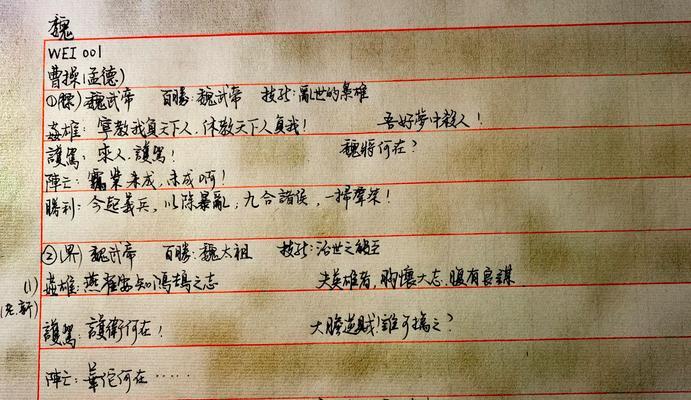 魏
WEI 001
曹操(孟德)
①(標) 魏武帝 百勝:魏武帝 技能:亂世的梟雄
姦雄:寧教我負天下人,休教天下人負我! 吾好夢中殺人!
護駕:來人,護駕! 魏將何在?
陣亡:霸業未成,未成啊!
勝利:今起義兵,以除暴亂,九合諸侯,一掃羣桀!
②(界) 魏武帝 百勝:魏太祖 技能:治世之能臣
(1) 姦雄:燕雀安知鴻鵠之志 夫英雄者,胸懷大志,腹有良謀
護駕:護衛何在! 大膽逆賊!誰可擒之?
陣亡:華佗何在……